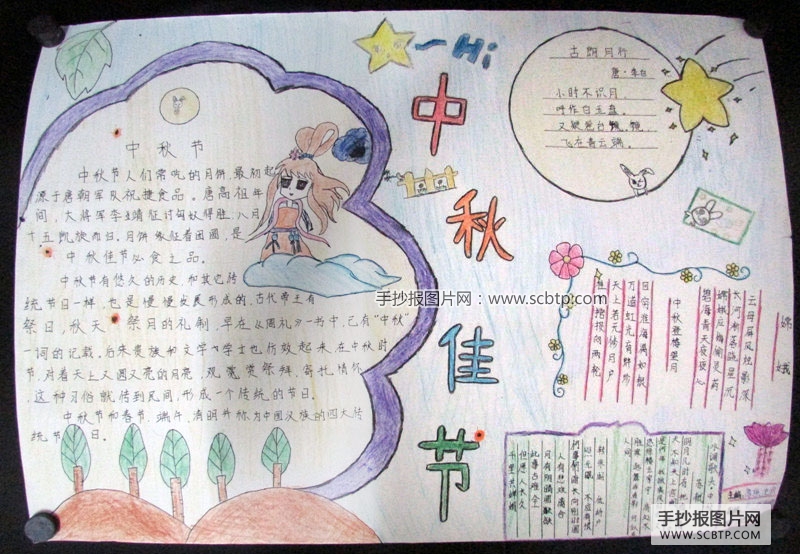 Hi
中秋佳节
中秋节
中秋节人们常吃的月饼,最初起
源于唐朝军队祝捷食品。唐高祖年
间,大将军李靖征讨匈奴得胜,八月
十五凯旋而归。月饼象征着团圆,是
中秋佳节必食之品。
中秋节有悠久的历史,和其它传
统节日一样,也是慢慢发展形成的,古代帝王有
祭日,秋天祭月的礼制,早在《周礼》一书中,已有“中秋”
一词的记载。后来贵族和文学学士也仿效起来,在中秋时
节,对着天上又圆又亮的月亮,观赏祭拜,寄托情怀
这种习俗就传到民间,形成一个传统的节日。
中秋节和春节、端午、清明并称为中国汉族的四大传
统节日。
古朗月行
唐·李白
小时不识月
呼作白玉盘。
又疑瑶台镜,
飞在青云端。
嫦娥
云母屏风烛影深
长河渐落晓星沉
嫦娥应悔偷灵药
碧海青天夜夜心
中秋登楼望月
目穷淮海满如银
万道虹光育蚌珍
天上若无修月户
桂枝撑损向西轮
水调歌头·中秋
苏轼
明月几时有 把
转朱阁 低绮户
何事长向别时圆
人有悲欢离合
月有阴晴圆缺
此事古难全
但愿人长久
千里共婵娟
主编
手抄报图片网:www.scbtp.com
手抄报图片网
SCBTP.COM